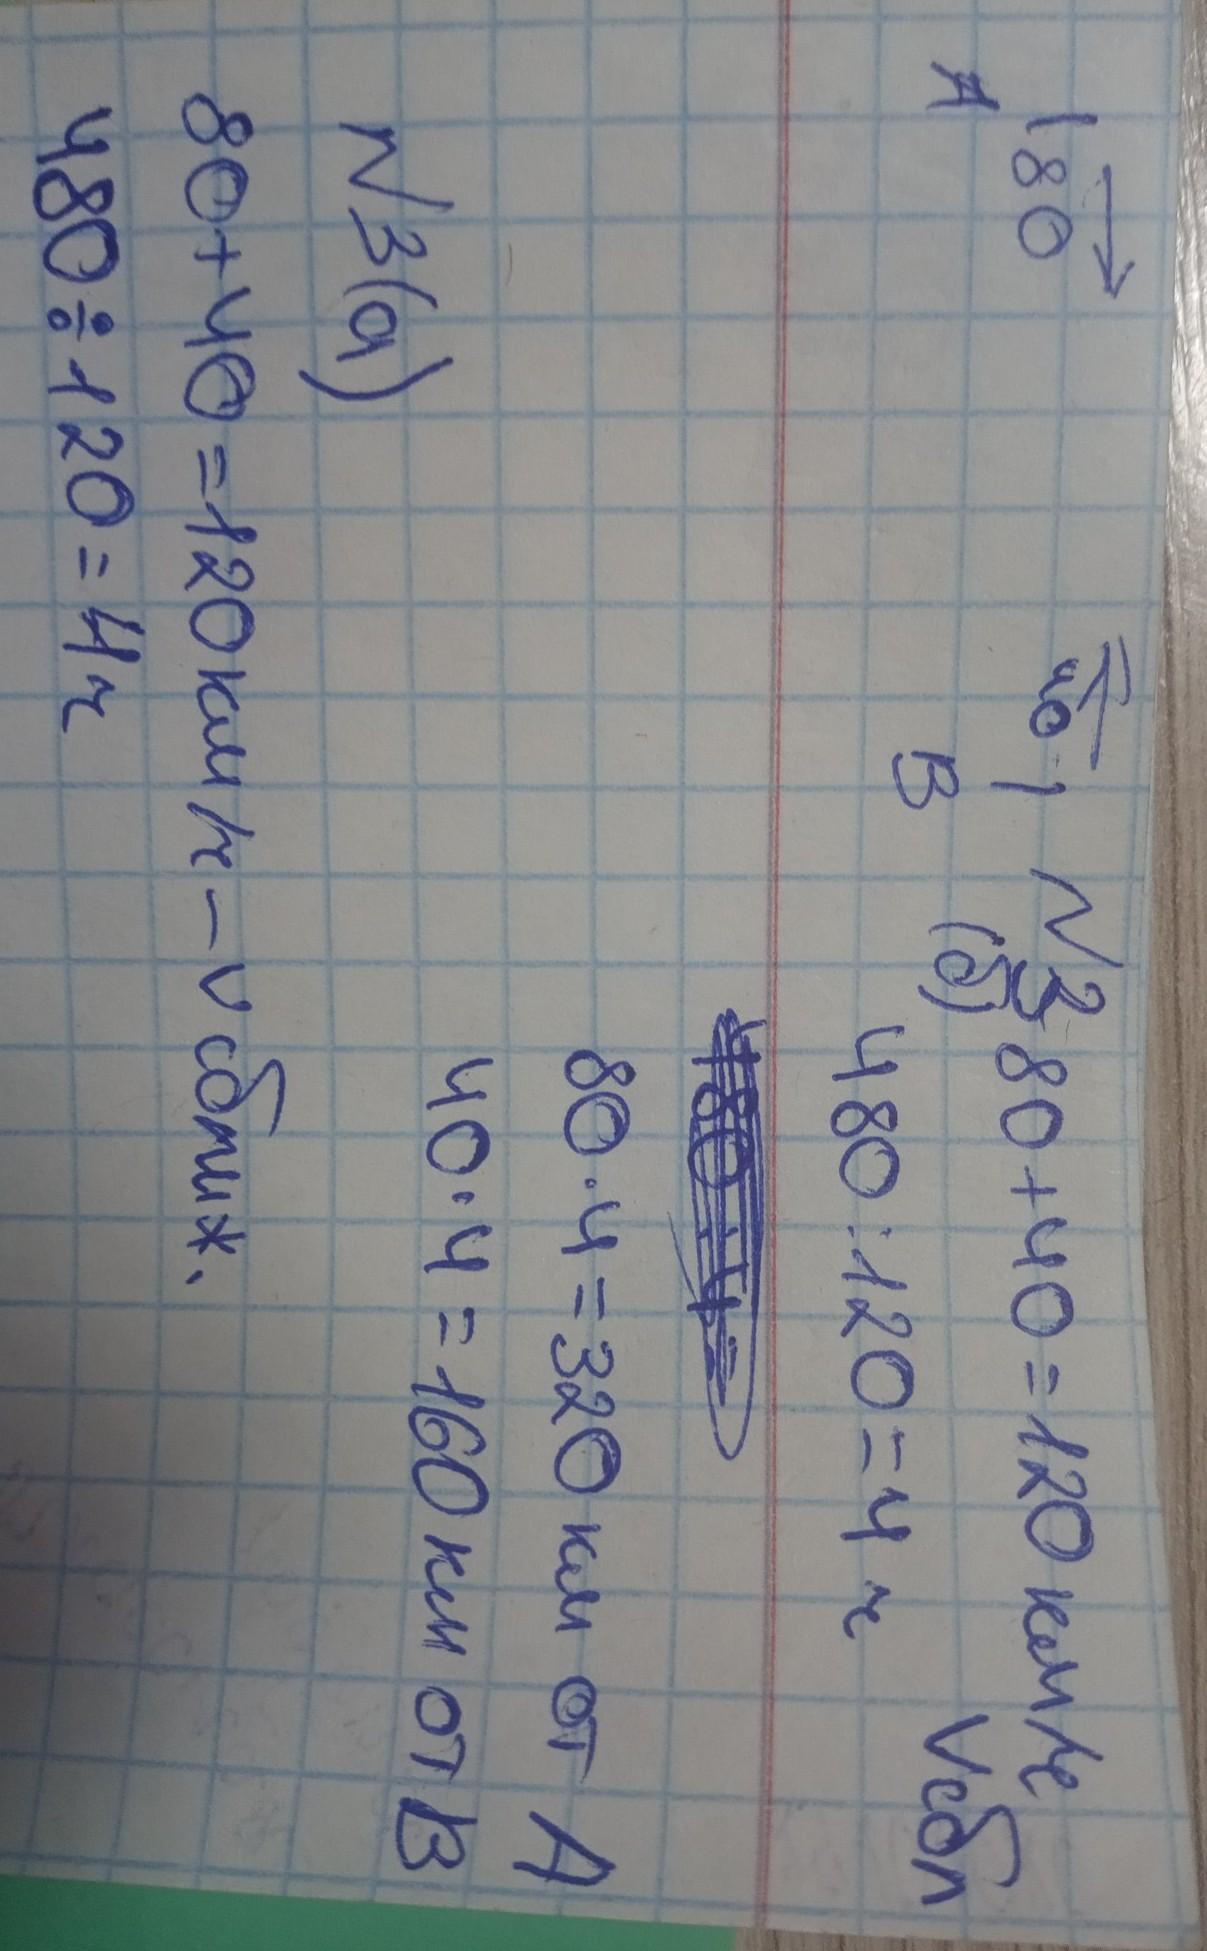 80 40 №3 80+40=120 км/ч
A B (б) Vсбл
480:120=4 ч
80·4=320 км от А
40·4=160 км от В
№3(а)
80+40=120 км/ч – v сближ.
480÷120=4ч